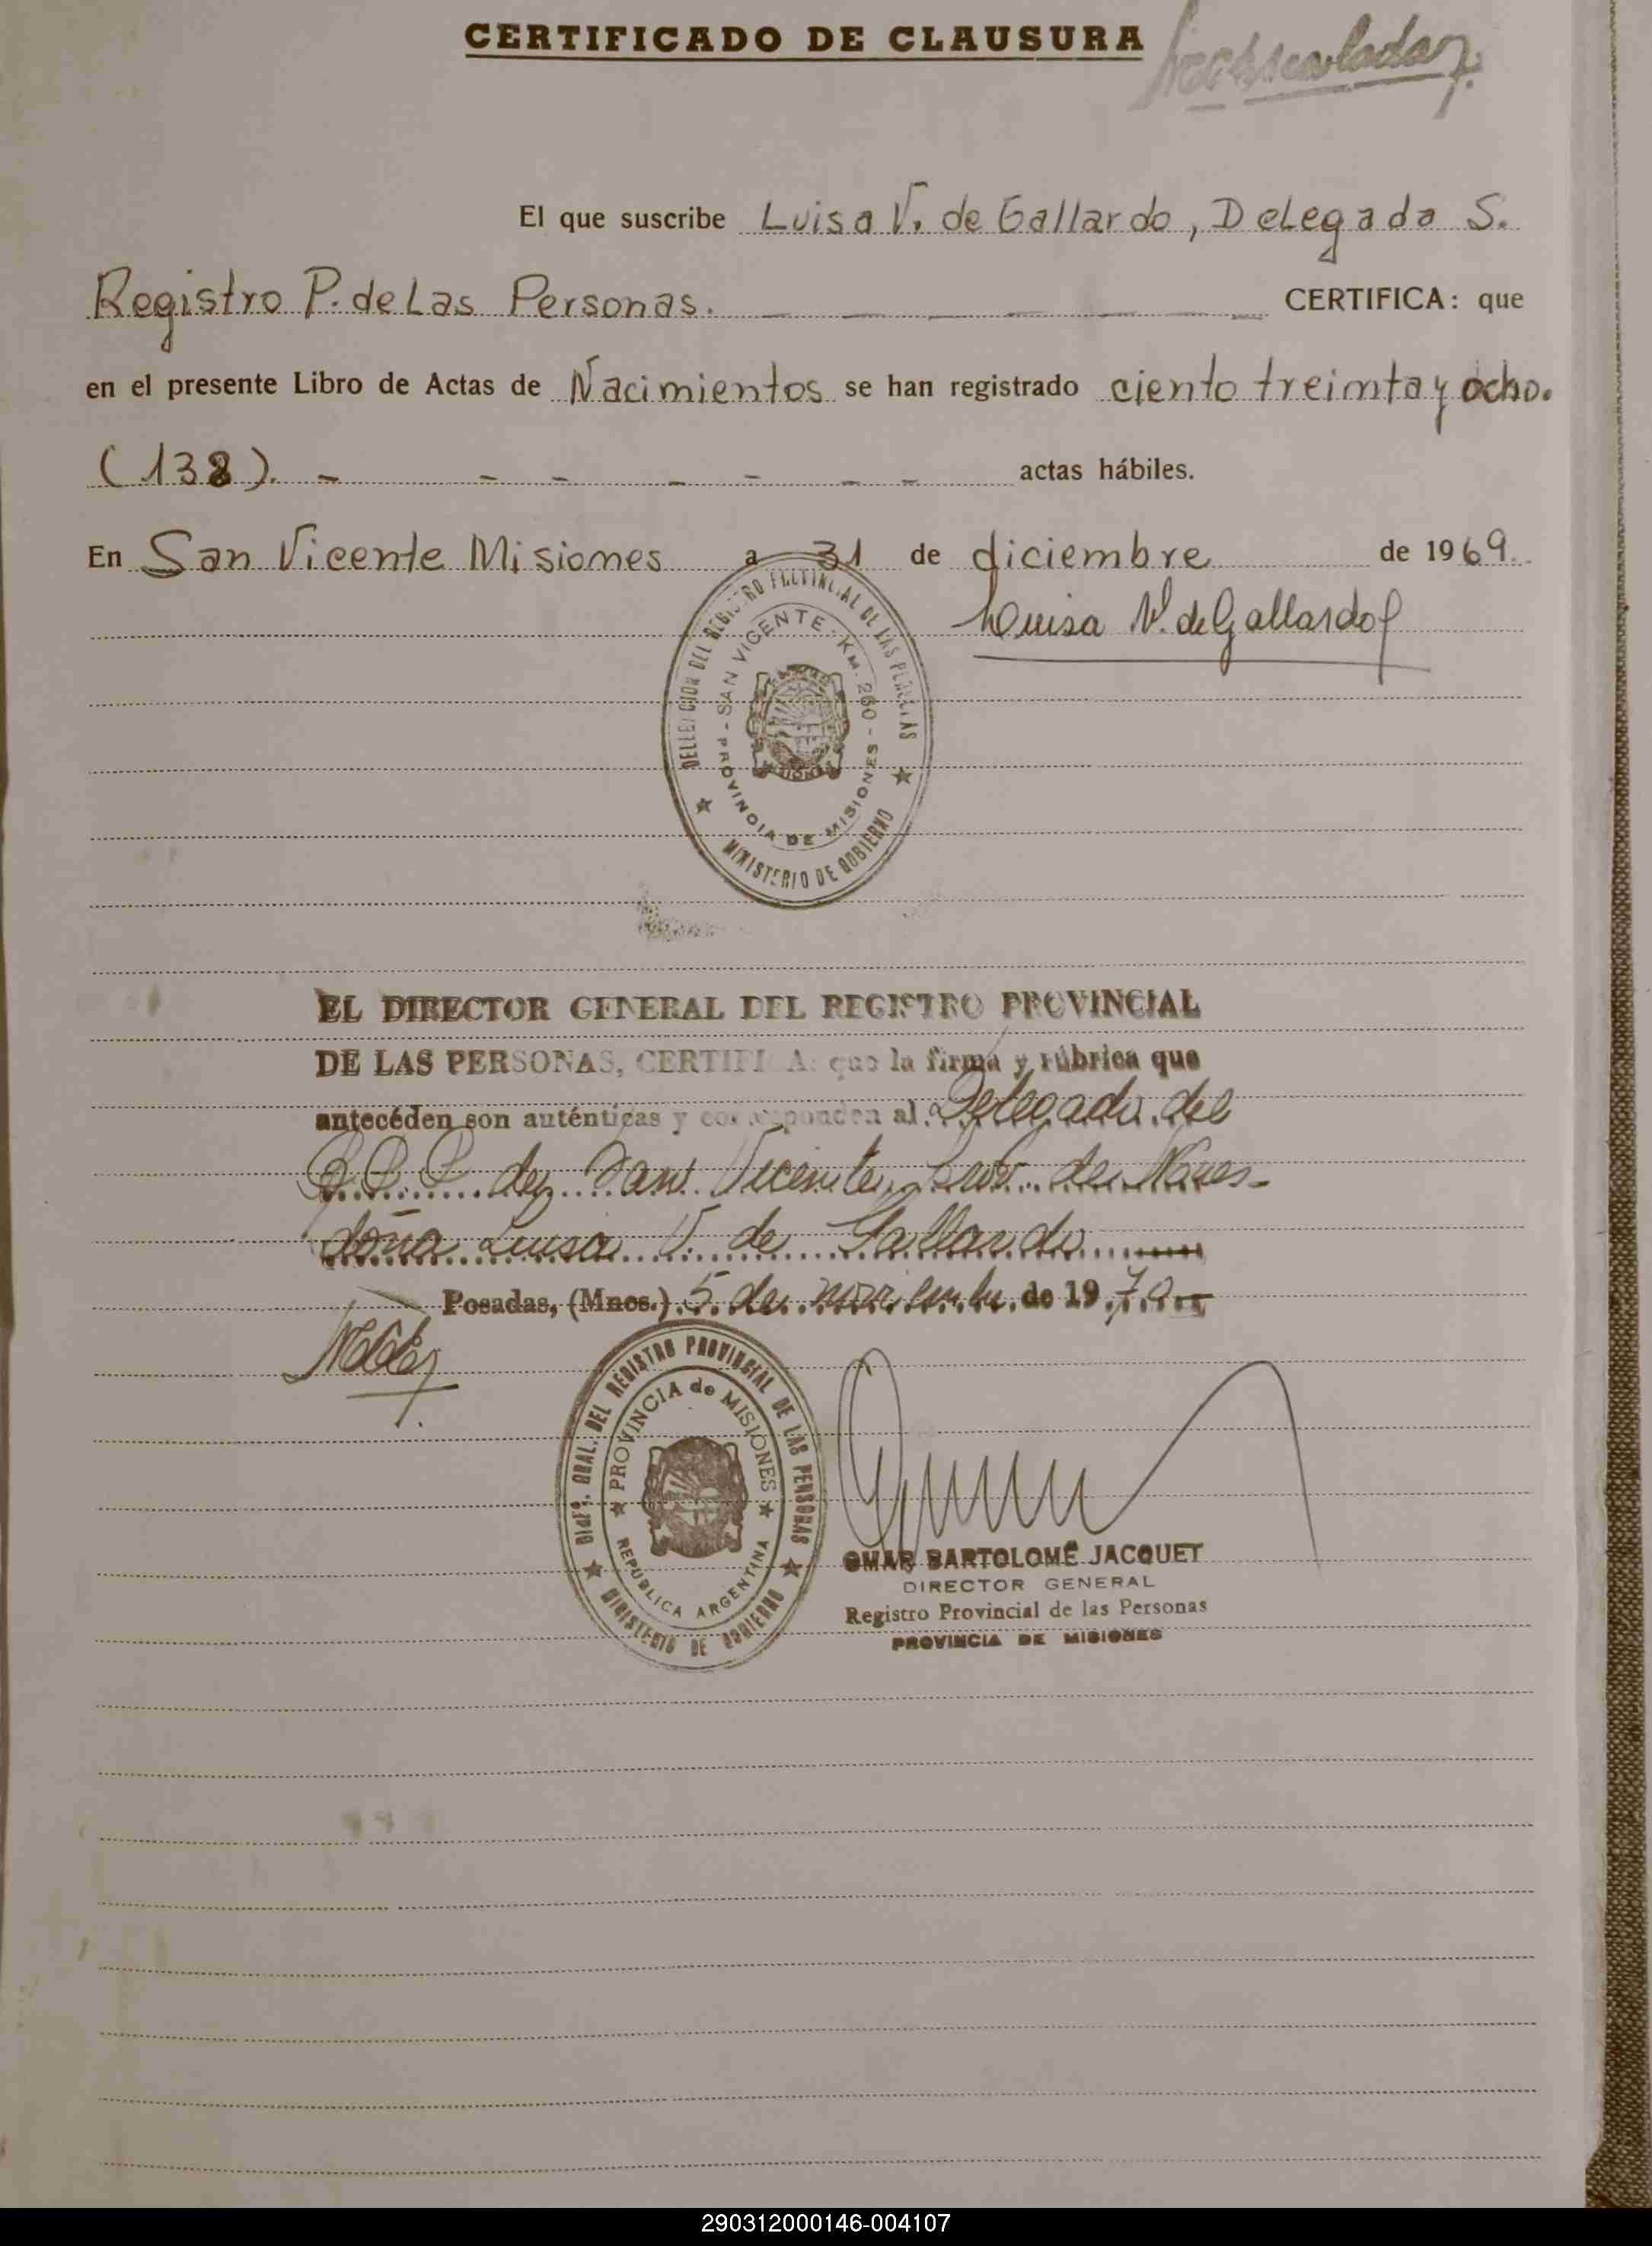 CERTIFICADO DE CLAUSURA
El que suscribe Luisa V. de Gallardo, Delegada S.
Registro P. de Las Personas. CERTIFICA: que
en el presente Libro de Actas de Nacimientos se han registrado ciento treinta y ocho.
(138). actas hábiles.
En San Vicente Misiones a 31 de diciembre de 1969.
Luisa V. de Gallardo
REGISTRO PROVINCIAL DE LAS
SAN VICENTE - KM. 260 - PROVINCIA DE MISIONES
MINISTERIO DE GOBIERNO
EL DIRECTOR GENERAL DEL REGISTRO PROVINCIAL
DE LAS PERSONAS, CERTIFICA: que la firma y rúbrica que
antecéden son auténticas y corresponden al Delegado del
de San Vicente
doña Luisa V. de Gallardo
Posadas, (Mnes.) 5 de noviembre de 1970
DIRC. GRAL. DEL REGISTRO PROVINCIAL DE LAS PERSONAS
PROVINCIA de MISIONES
REPUBLICA ARGENTINA
MINISTERIO DE GOBIERNO
OMAR BARTOLOMÉ JACQUET
DIRECTOR GENERAL
Registro Provincial de las Personas
PROVINCIA DE MISIONES
290312000146-004107